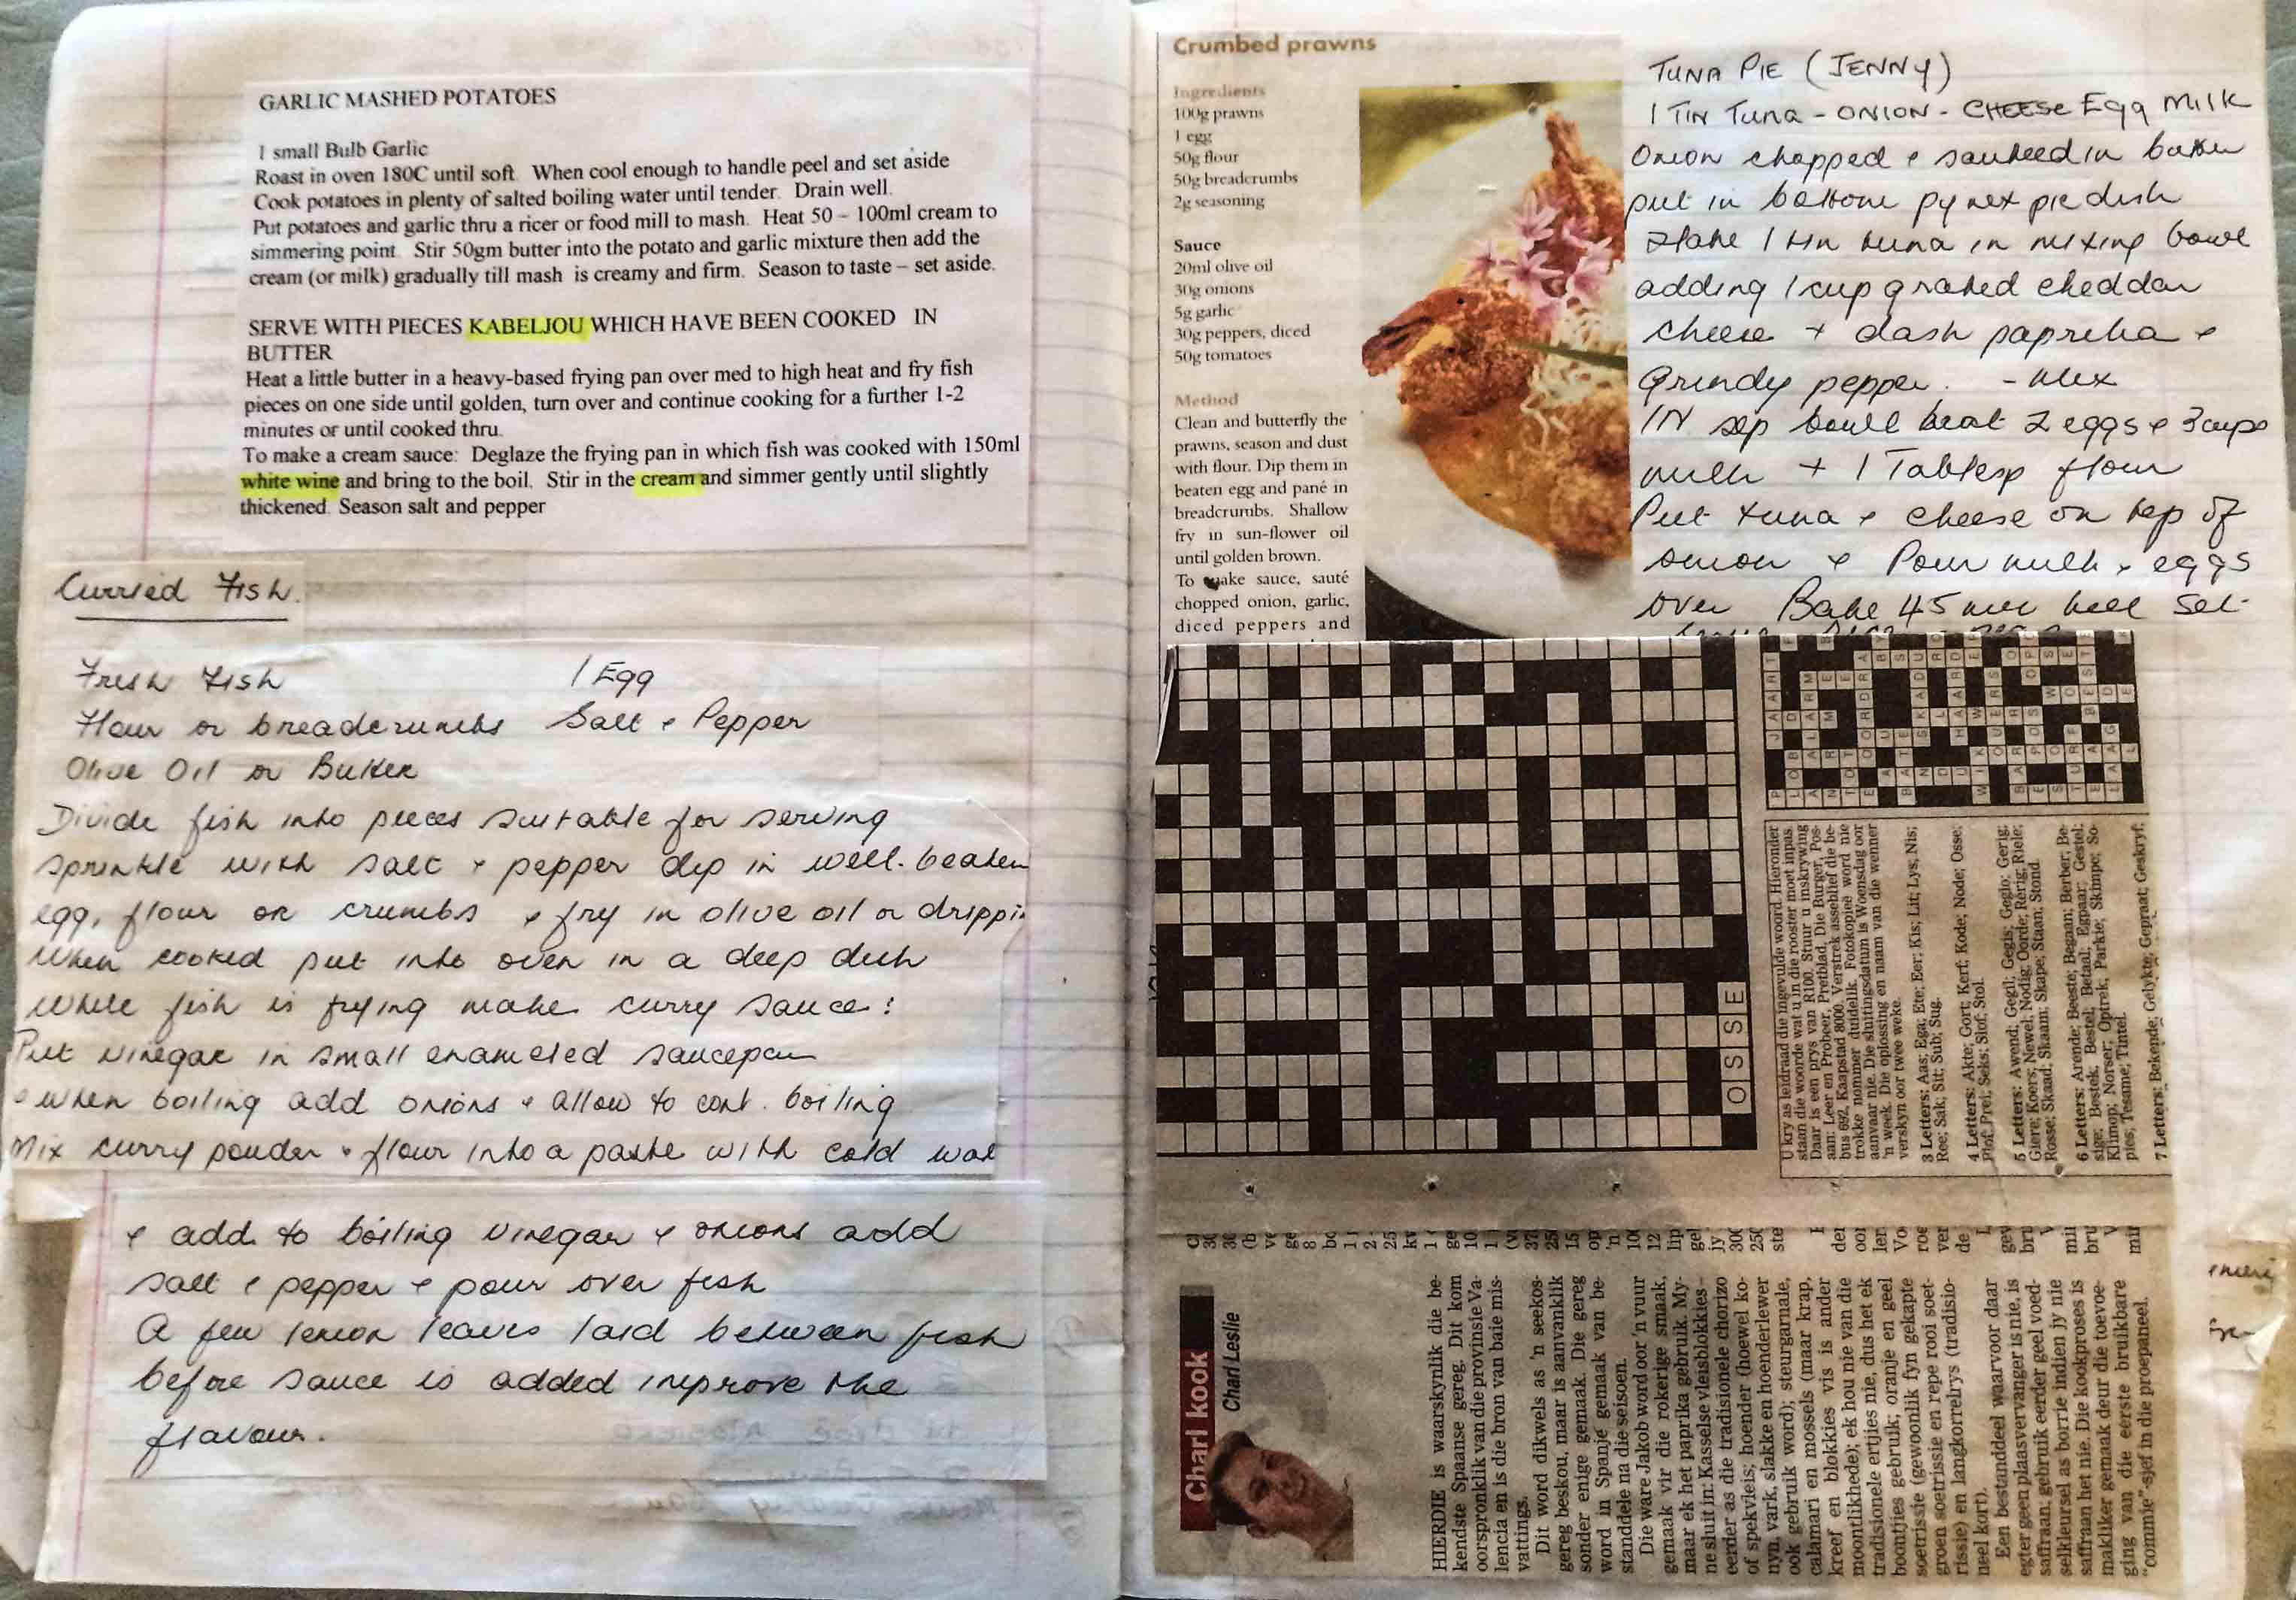 GARLIC MASHED POTATOES
1 small Bulb Garlic
Roast in oven 180C until soft. When cool enough to handle peel and set aside
Cook potatoes in plenty of salted boiling water until tender. Drain well.
Put potatoes and garlic thru a ricer or food mill to mash. Heat 50 – 100ml cream to
simmering point. Stir 50gm butter into the potato and garlic mixture then add the
cream (or milk) gradually till mash is creamy and firm. Season to taste – set aside.
SERVE WITH PIECES KABELJOU WHICH HAVE BEEN COOKED IN
BUTTER
Heat a little butter in a heavy-based frying pan over med to high heat and fry fish
pieces on one side until golden, turn over and continue cooking for a further 1-2
minutes or until cooked thru.
To make a cream sauce: Deglaze the frying pan in which fish was cooked with 150ml
white wine and bring to the boil. Stir in the cream and simmer gently until slightly
thickened. Season salt and pepper
Curried Fish.
Fresh Fish 1 Egg
Flour or breadcrumbs Salt & Pepper
Olive Oil or Butter
Divide fish into pieces suitable for serving
sprinkle with salt & pepper dip in well-beaten
egg, flour or crumbs & fry in olive oil or drippi
When cooked put into oven in a deep dish
While fish is frying make curry sauce:
Put vinegar in small enameled saucepan
& when boiling add onions & allow to cont. boiling
Mix curry powder & flour into a paste with cold wat
& add to boiling vinegar & onions add
salt & pepper & pour over fish
A few lemon leaves laid between fish
before sauce is added improve the
flavour.
Crumbed prawns
Ingredients
100g prawns
1 egg
50g flour
50g breadcrumbs
2g seasoning
Sauce
20ml olive oil
30g onions
5g garlic
30g peppers, diced
50g tomatoes
Method
Clean and butterfly the
prawns, season and dust
with flour. Dip them in
beaten egg and pané in
breadcrumbs. Shallow
fry in sun-flower oil
until golden brown.
To make sauce, sauté
chopped onion, garlic,
diced peppers and
TUNA PIE (JENNY)
1 TIN TUNA - ONION - CHEESE Egg Milk
Onion chopped & sauteed in butter
put in bottom pyrex pie dish
Flake 1 tin tuna in mixing bowl
adding 1 cup grated cheddar
cheese + dash paprika &
Grindy pepper. - Mix
IN sep bowl beat 2 eggs & 3 cups
milk + 1 Tablesp flour
Put tuna & cheese on top of
onion & Pour milk & eggs
over Bake 45 min till set
OSSE
U kry as leidraad die ingevulde woord. Hieronder
staan die woorde wat u in die rooster moet inpas.
Daar is een prys van R100. Stuur u inskrywing
aan: Leer en Probeer, Pretblad, Die Burger, Pos-
bus 692, Kaapstad 8000. Verstrek asseblief die be-
trokke nommer duidelik. Fotokopieë word nie
aanvaar nie. Die sluitingsdatum is Woensdag oor
'n week. Die oplossing en naam van die wenner
verskyn oor twee weke.
3 Letters: Aas; Ega; Ete; Eer; Kis; Lit; Lys; Nis;
Ree; Sak; Sit; Sub; Sug.
4 Letters: Akte; Gort; Kerf; Kode; Node; Osse;
Plof; Pret; Seks; Slof; Stol.
5 Letters: Awend; Gegil; Gegis; Geglo; Gerig;
Giere; Koers; Newel; Nodig; Oorde; Rerig; Riele;
Rosse; Skaad; Skaam; Skape; Staan; Stond.
6 Letters: Arende; Beeste; Begaan; Berber; Be-
sige; Bestek; Bestel; Betaal; Egpaar; Gestel;
Klimop; Norser; Optrek; Parkie; Skimpe; So-
pies; Tesame; Tintel.
7 Letters: Bekende; Gelykte; Gepraat; Geskryf;
Charl kook
Charl Leslie
HIERDIE is waarskynlik die be-
kendste Spaanse gereg. Dit kom
oorspronklik van die provinsie Va-
lencia en is die bron van baie mis-
vattings.
Dit word dikwels as 'n seekos-
gereg beskou, maar is aanvanklik
sonder enige gemaak. Die gereg
word in Spanje gemaak van be-
standdele na die seisoen.
Die ware Jakob word oor 'n vuur
gemaak vir die rokerige smaak,
maar ek het paprika gebruik. My-
ne sluit in: Kasselse vleisblokkies
eerder as die tradisionele chorizo
of spekvleis; hoender (hoewel ko-
nyn, vark, slakke en hoenderlewer
ook gebruik word); steurgarnale,
calamari en mossels (maar krap,
kreef en blokkies vis is ander
moontlikhede); ek hou nie van die
tradisionele ertjies nie, dus het ek
boontjies gebruik; oranje en geel
soetrissie (gewoonlik fyn gekapte
groen soetrissie en repe rooi soet-
rissie) en langkorrelrys (tradisio-
neel kort).
Een bestanddeel waarvoor daar
egter geen plaasvervanger is nie, is
saffraan: gebruik eerder geel voed-
selkleursel as borrie indien jy nie
saffraan het nie. Die kookproses is
makliker gemaak deur die toevoe-
ging van die eerste bruikbare
"commie"-sjef in die proepaneel.